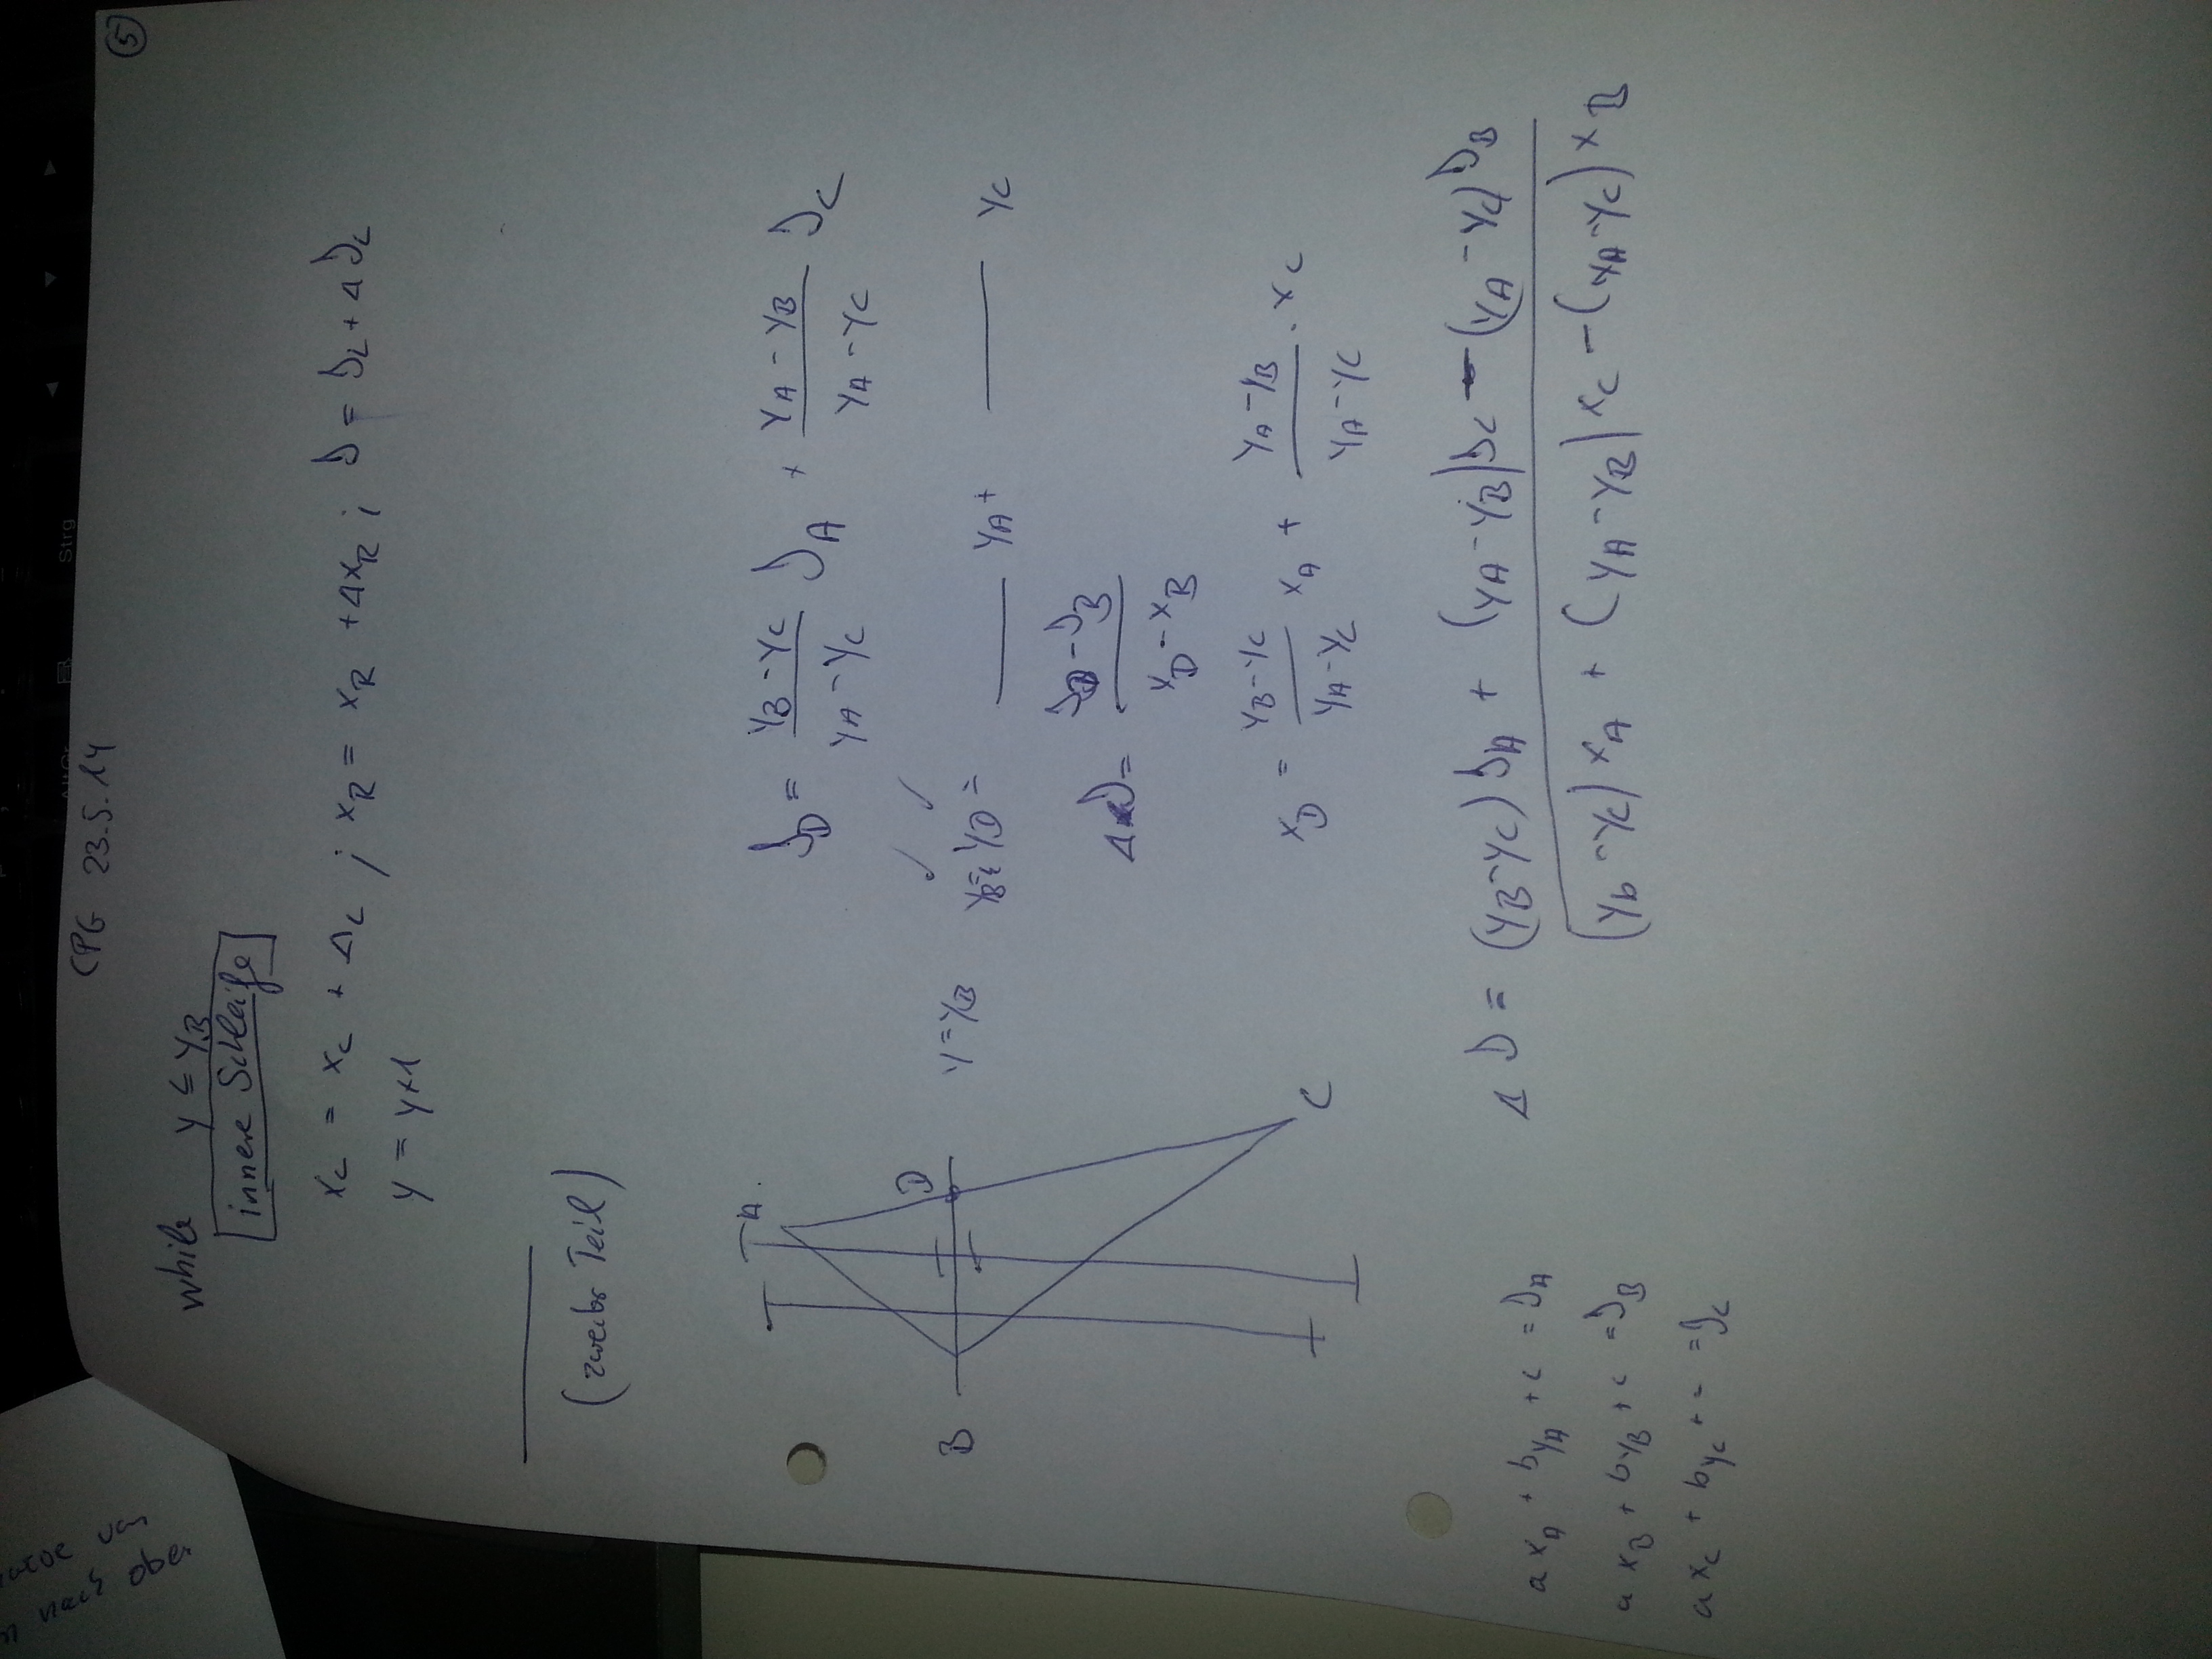 AltGr Strg
CPG 23.5.14
5
while y ≤ yB
innere Schleife
xL = xL + ΔL ; xR = xR + ΔxR ; I = IL + ΔIL
y = y+1
(zweiter Teil)
A
B
D
C
y = yB
ID = (yB - yC)/(yA - yC) IA + (yA - yB)/(yA - yC) IC
✓ ✓
yB = yD = ___ yA + ___ yC
ΔI = (ID - IB)/(xD - xB)
xD = (yB - yC)/(yA - yC) xA + (yA - yB)/(yA - yC) · xC
ΔI = ((yB - yC) IA + (yA - yB) IC - (yA - yC) IB)/((yb - yC) xA + (yA - yB) xC - (yA - yC) xB)
a xA + b yA + c = IA
a xB + b yB + c = IB
a xC + b yC + c = IC
von
nach oben